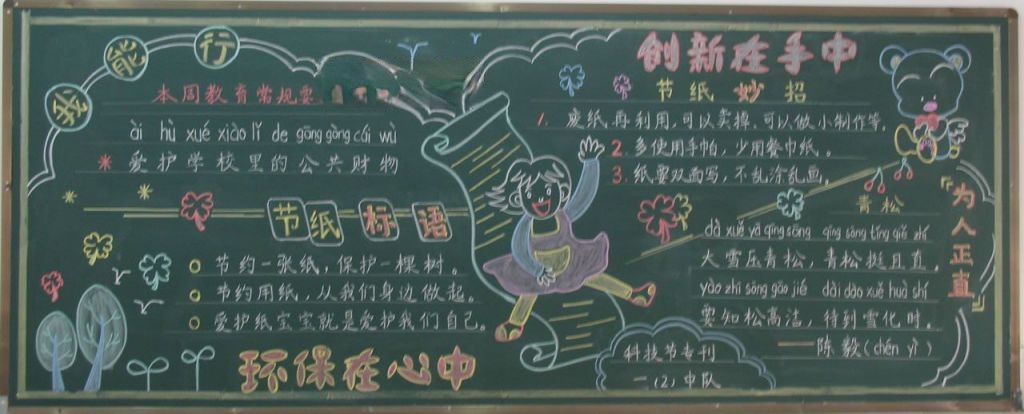 我能行
本周教育常规要
ài hù xué xiào lǐ de gōng gòng cái wù
* 爱护学校里的公共财物
节纸标语
节约一张纸，保护一棵树。
节约用纸，从我们身边做起。
爱护纸宝宝就是爱护我们自己。
环保在心中
创新在手中
节纸妙招
1. 废纸再利用，可以卖掉，可以做小制作等。
2. 多使用手帕，少用餐巾纸。
3. 纸要双面写，不乱涂乱画。
青松
dà xuě yā qīng sōng qīng sōng tǐng qiě zhí
大雪压青松，青松挺且直。
yào zhī sōng gāo jié dài dào xuě huà shí
要知松高洁，待到雪化时。
——陈毅(chén yì)
『为人正直』
科技节专刊
一(2)中队